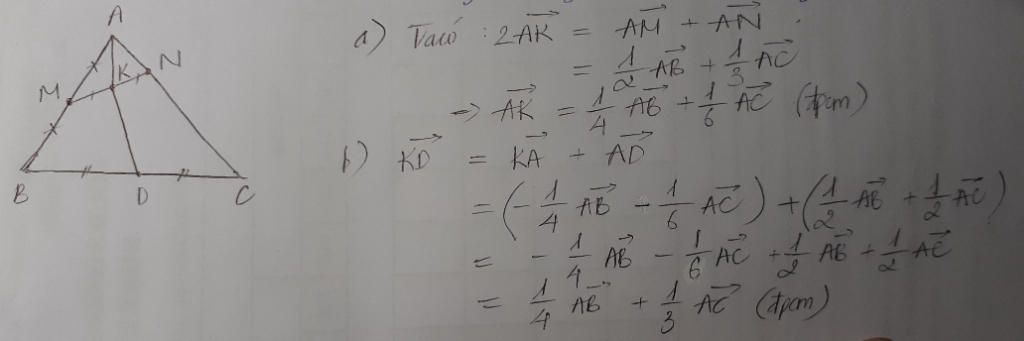 A
K
N
M
B
D
C
a) Ta có : 2\overrightarrow{AK} = \overrightarrow{AM} + \overrightarrow{AN}
= \frac{1}{2}\overrightarrow{AB} + \frac{1}{3}\overrightarrow{AC}
=> \overrightarrow{AK} = \frac{1}{4}\overrightarrow{AB} + \frac{1}{6}\overrightarrow{AC} (đpcm)
b) \overrightarrow{KD} = \overrightarrow{KA} + \overrightarrow{AD}
= (-\frac{1}{4}\overrightarrow{AB} - \frac{1}{6}\overrightarrow{AC}) + (\frac{1}{2}\overrightarrow{AB} + \frac{1}{2}\overrightarrow{AC})
= -\frac{1}{4}\overrightarrow{AB} - \frac{1}{6}\overrightarrow{AC} + \frac{1}{2}\overrightarrow{AB} + \frac{1}{2}\overrightarrow{AC}
= \frac{1}{4}\overrightarrow{AB} + \frac{1}{3}\overrightarrow{AC} (đpcm)